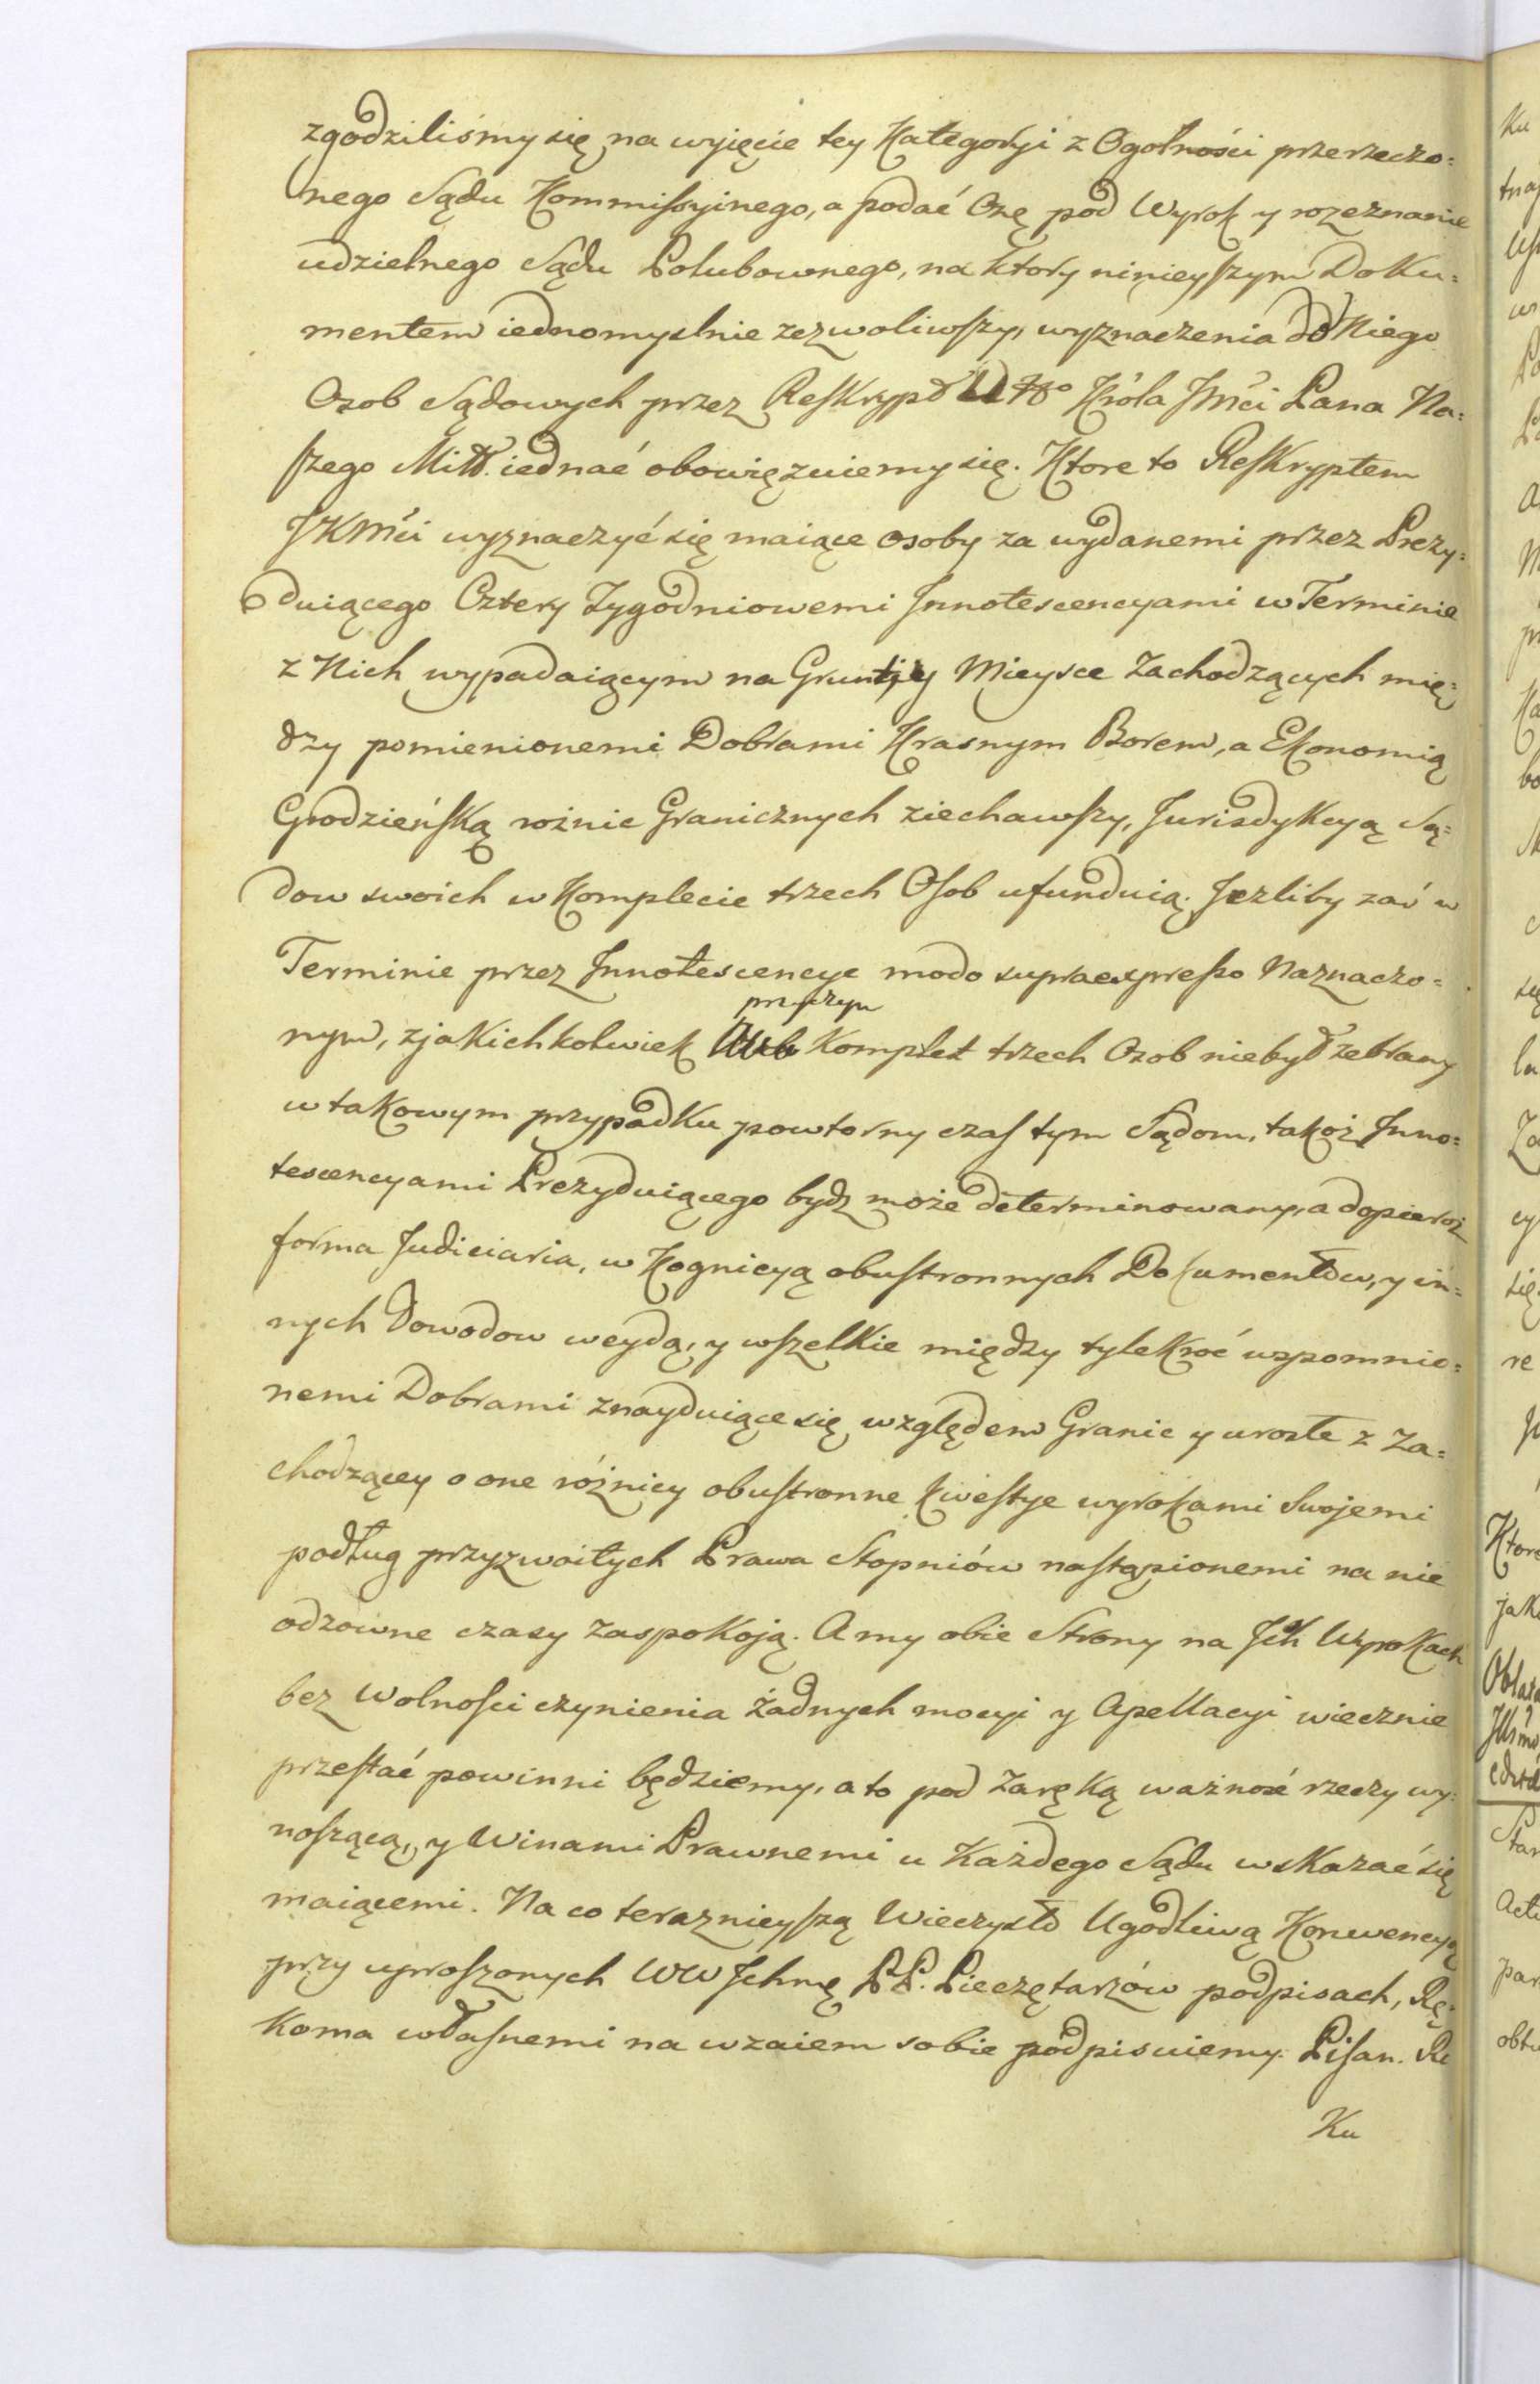 zgodziliśmy się na wyięcie tey Kategoryi z Ogolności przerzeczo=
nego Sądu Kommissyinego, a podać Onę pod Wyrok y rozeznanie
udzielnego Sądu Polubownego, na ktory ninieyszym Doku=
mentem iednomyslnie zezwoliwszy, wyznaczenia do Niego
Osob Sądowych przez Reskrypt Króla Jmći Pana Na=
szego Miłł. iednać obowięzuiemy się. Ktore to Reskryptem
JKMći wyznaczyć się maiące osoby za wydanemi przez Prezy=
duiącego Cztery Tygodniowemi Innotescencyami w Terminie
z Nich wypadaiącym na Grunt y Mieysce Zachodzących mię=
dzy pomienionemi Dobrami Krasnym Borem, a Ekonomią
Grodzieńską rożnic Granicznych ziechawszy, Jurisdykcyą Są=
dow swoich w Komplecie trzech Osob ufunduią. Jezliby zaś w
Terminie przez Innotescencye modo supraexpresso Naznaczo=
nym, z jakichkolwiek przyczyn Komplet trzech Osob niebył zebrany
w takowym przypadku powtorny czas tym Sądom, takoż Inno=
tescencyami Prezyduiącego bydz może determinowany, a dopieroż
forma Judiciaria, w Kognicyą obustronnych Dokumentow, y in=
nych Dowodow weydą, y wszelkie między tylekroć wspomnio=
nemi Dobrami znayduiące się względem Granic y urosłe z Za=
chodzącey o one różnicy obustronne kwestye wyrokami Swojemi
podług przyzwoitych Prawa Stopniów nastąpionemi na nie
odzowne czasy Zaspokoją. A my obie Strony na Ich Wyrokach
bez Wolności czynienia żadnych mocyi y Apellacyi wiecznie
przestać powinni będziemy, a to pod Zaręką ważność rzeczy wy=
noszącą, y Winami Prawnemi u Każdego Sądu wskazać się
maiącemi. Na co teraznieyszą Wieczysto Ugodliwą Konwencyą
przy uproszonych WW Ichmę PP. Pieczętarzów podpisach, Rę=
koma własnemi na wzaiem sobie podpisuiemy. Pisan. Ro
Ku